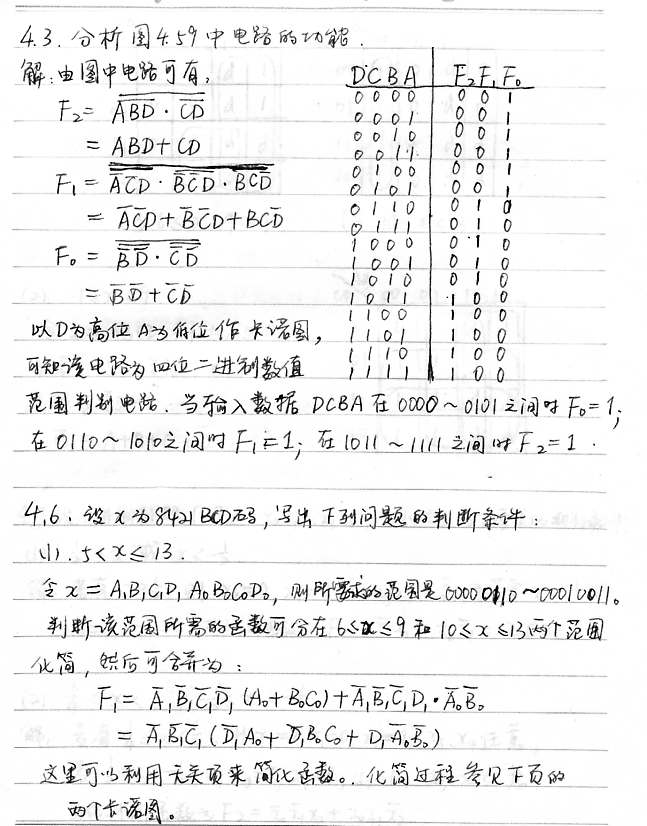 4.3. 分析图4.59中电路的功能.
解:由图中电路可有,
DCBA F₂F₁F₀
F₂= \overline{\overline{ABD} · \overline{CD}}
= ABD+CD
F₁ = \overline{\overline{\overline{A}\overline{C}D} · \overline{\overline{B}\overline{C}D} · \overline{BC\overline{D}}}
= \overline{A}\overline{C}D+\overline{B}\overline{C}D+BC\overline{D}
F₀ = \overline{\overline{\overline{B}\overline{D}} · \overline{\overline{C}\overline{D}}}
= \overline{B}\overline{D}+\overline{C}\overline{D}
0000 001
0001 001
0010 001
0011 001
0100 001
0101 001
0110 010
0111 010
1000 010
1001 010
1010 010
1011 100
1100 100
1101 100
1110 100
1111 100
以D为高位A为低位作卡诺图,
可知该电路为四位二进制数值
范围判别电路. 当输入数据 DCBA 在 0000~0101之间时 F₀=1;
在 0110~1010之间时 F₁=1; 在 1011~1111 之间时 F₂=1.
4.6. 设 x 为8421 BCD码, 写出下列问题的判断条件:
(1). 5<x≤13.
令 x = A₁B₁C₁D₁ A₀B₀C₀D₀, 则所需求的范围是 00000110~00010011。
判断该范围所需的函数可分在 6≤x≤9 和 10≤x≤13两个范围
化简, 然后可合并为:
F₁= \overline{A}₁\overline{B}₁\overline{C}₁\overline{D}₁(A₀+B₀C₀)+\overline{A}₁\overline{B}₁\overline{C}₁D₁·\overline{A}₀\overline{B}₀
= \overline{A}₁\overline{B}₁\overline{C}₁(\overline{D}₁A₀+\overline{D}₁B₀C₀+D₁\overline{A}₀\overline{B}₀)
这里可以利用无关项来简化函数。. 化简过程参见下页的
两个卡诺图。